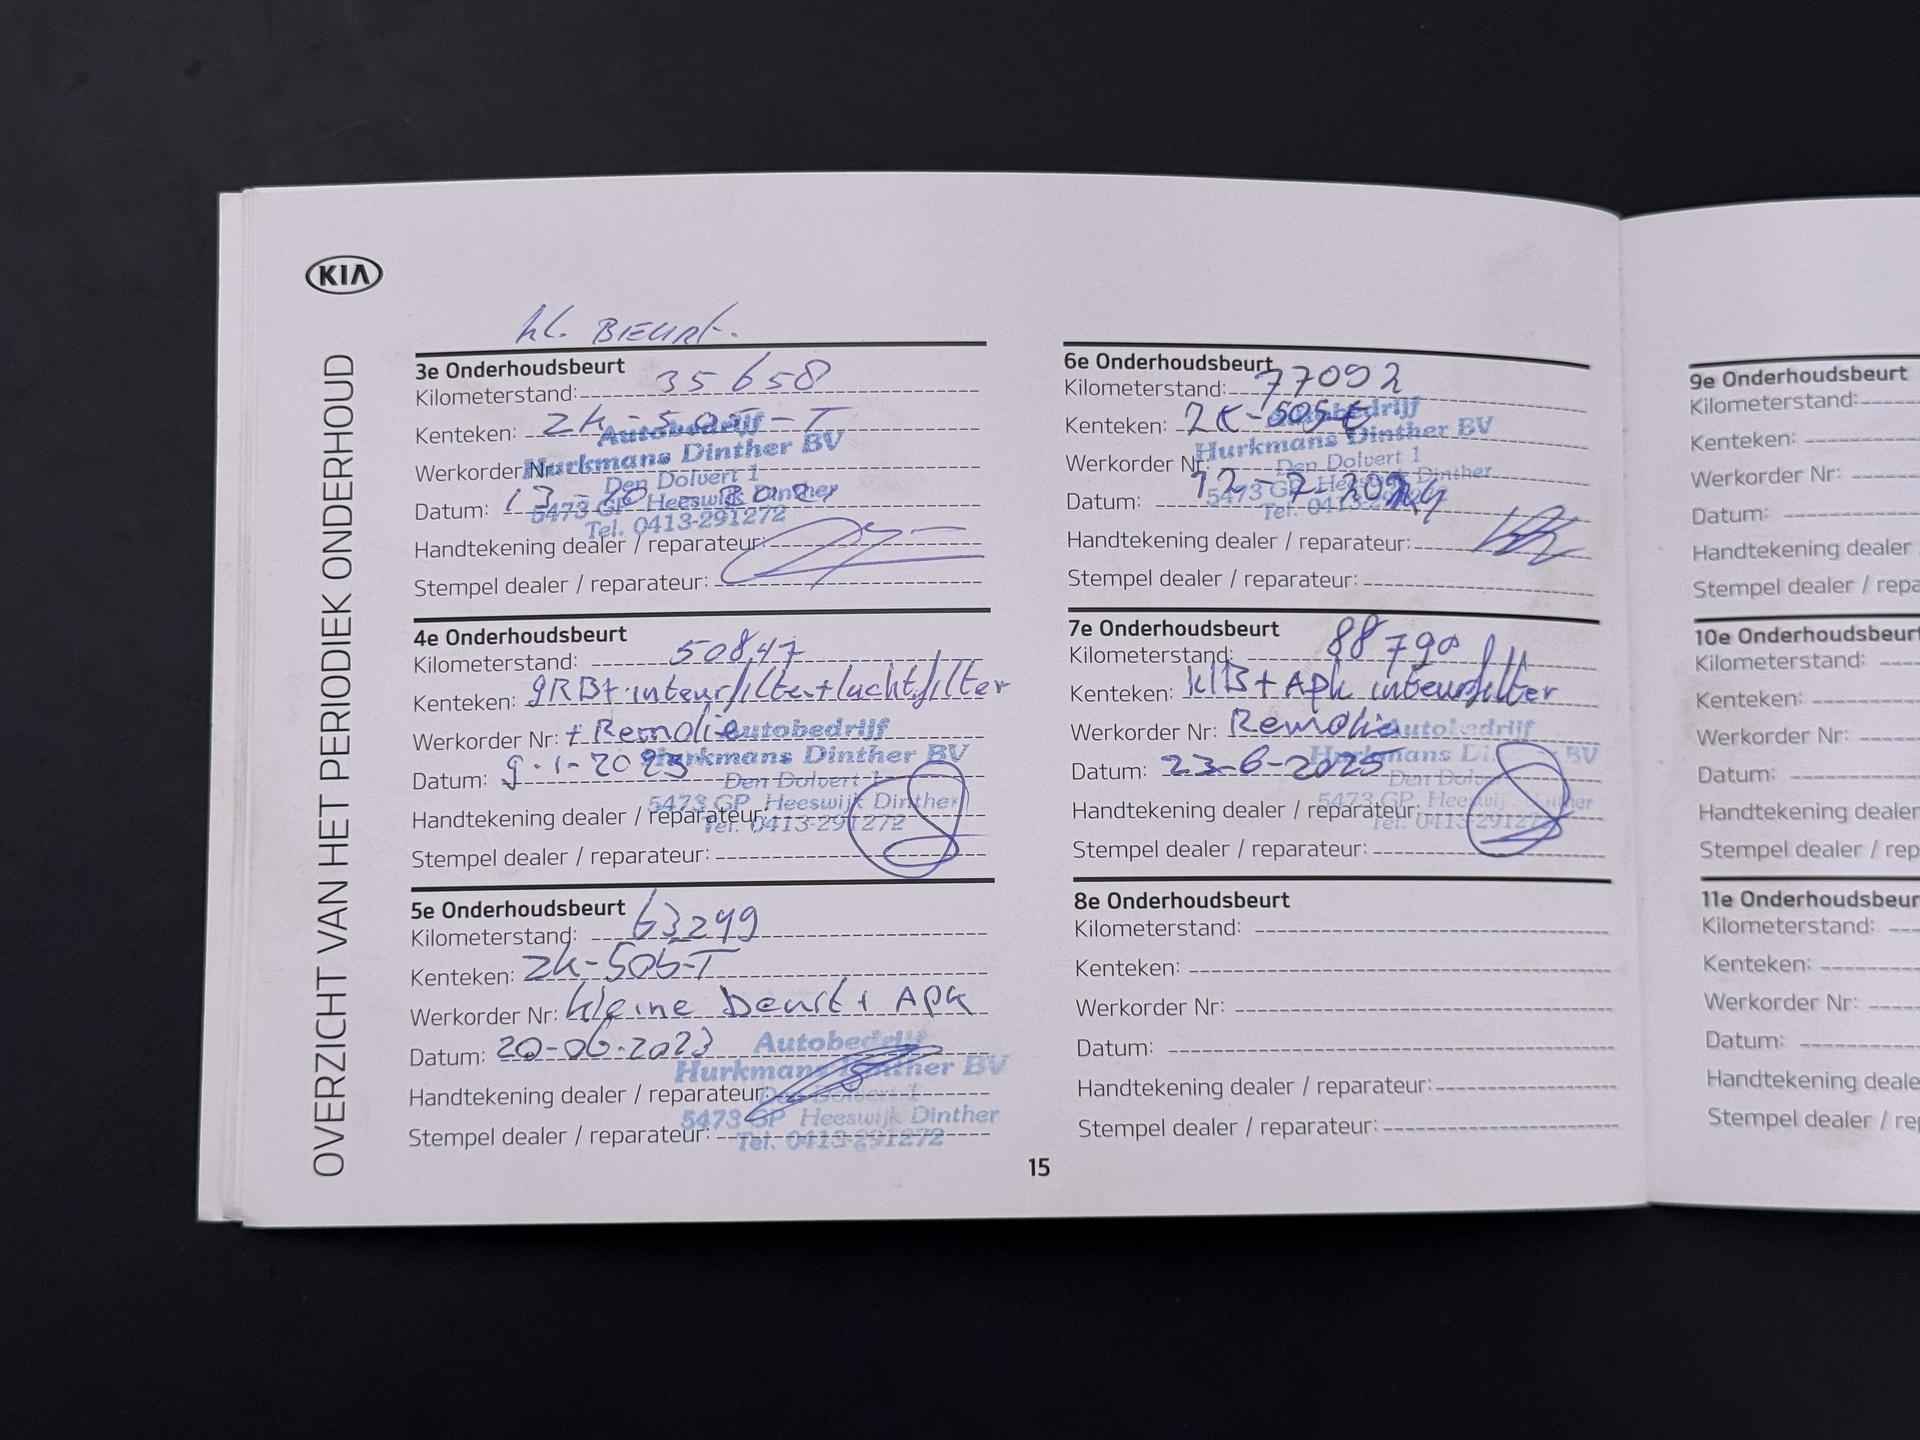 KIA
OVERZICHT VAN HET PERIODIEK ONDERHOUD
kl. BEURT.
3e Onderhoudsbeurt
Kilometerstand: 35658
Kenteken: ZK-505-T
Autobedrijf
Werkorder Nr:
Hurkmans Dinther BV
Den Dolvert 1
Datum: 13
5473 GP Heeswijk Dinther
Tel. 0413-291272
Handtekening dealer / reparateur:
Stempel dealer / reparateur:
4e Onderhoudsbeurt
Kilometerstand: 50847
Kenteken: gRBt interieurfilter + luchtfilter
Werkorder Nr: + Remolie
Autobedrijf
Hurkmans Dinther BV
Datum: 9-1-2023
Den Dolvert 1
5473 GP Heeswijk Dinther
Handtekening dealer / reparateur:
Tel. 0413-291272
Stempel dealer / reparateur:
5e Onderhoudsbeurt
Kilometerstand: 63299
Kenteken: ZK-505-T
Werkorder Nr: kleine beurt + APK
Datum: 20-06-2023
Autobedrijf
Hurkmans Dinther BV
Handtekening dealer / reparateur:
Den Dolvert 1
5473 GP Heeswijk Dinther
Stempel dealer / reparateur:
Tel. 0413-291272
6e Onderhoudsbeurt
Kilometerstand: 77092
Kenteken: ZK-505-t
Autobedrijf
Hurkmans Dinther BV
Werkorder Nr:
Den Dolvert 1
Datum: 12-7-2024
5473 GP Heeswijk Dinther
Tel. 0413-2
Handtekening dealer / reparateur:
Stempel dealer / reparateur:
7e Onderhoudsbeurt
Kilometerstand: 88790
Kenteken: klB + Apk interieurfilter
Werkorder Nr: Remolie
Autobedrijf
Hurkmans Dinther BV
Datum: 23-6-2025
Den Dolvert
5473 GP Heeswijk Dinther
Handtekening dealer / reparateur:
Tel. 0413-29127
Stempel dealer / reparateur:
8e Onderhoudsbeurt
Kilometerstand:
Kenteken:
Werkorder Nr:
Datum:
Handtekening dealer / reparateur:
Stempel dealer / reparateur:
15
9e Onderhoudsbeurt
Kilometerstand:
Kenteken:
Werkorder Nr:
Datum:
Handtekening dealer
Stempel dealer / repa
10e Onderhoudsbeurt
Kilometerstand:
Kenteken:
Werkorder Nr:
Datum:
Handtekening dealer
Stempel dealer / rep
11e Onderhoudsbeur
Kilometerstand:
Kenteken:
Werkorder Nr:
Datum:
Handtekening deale
Stempel dealer / re